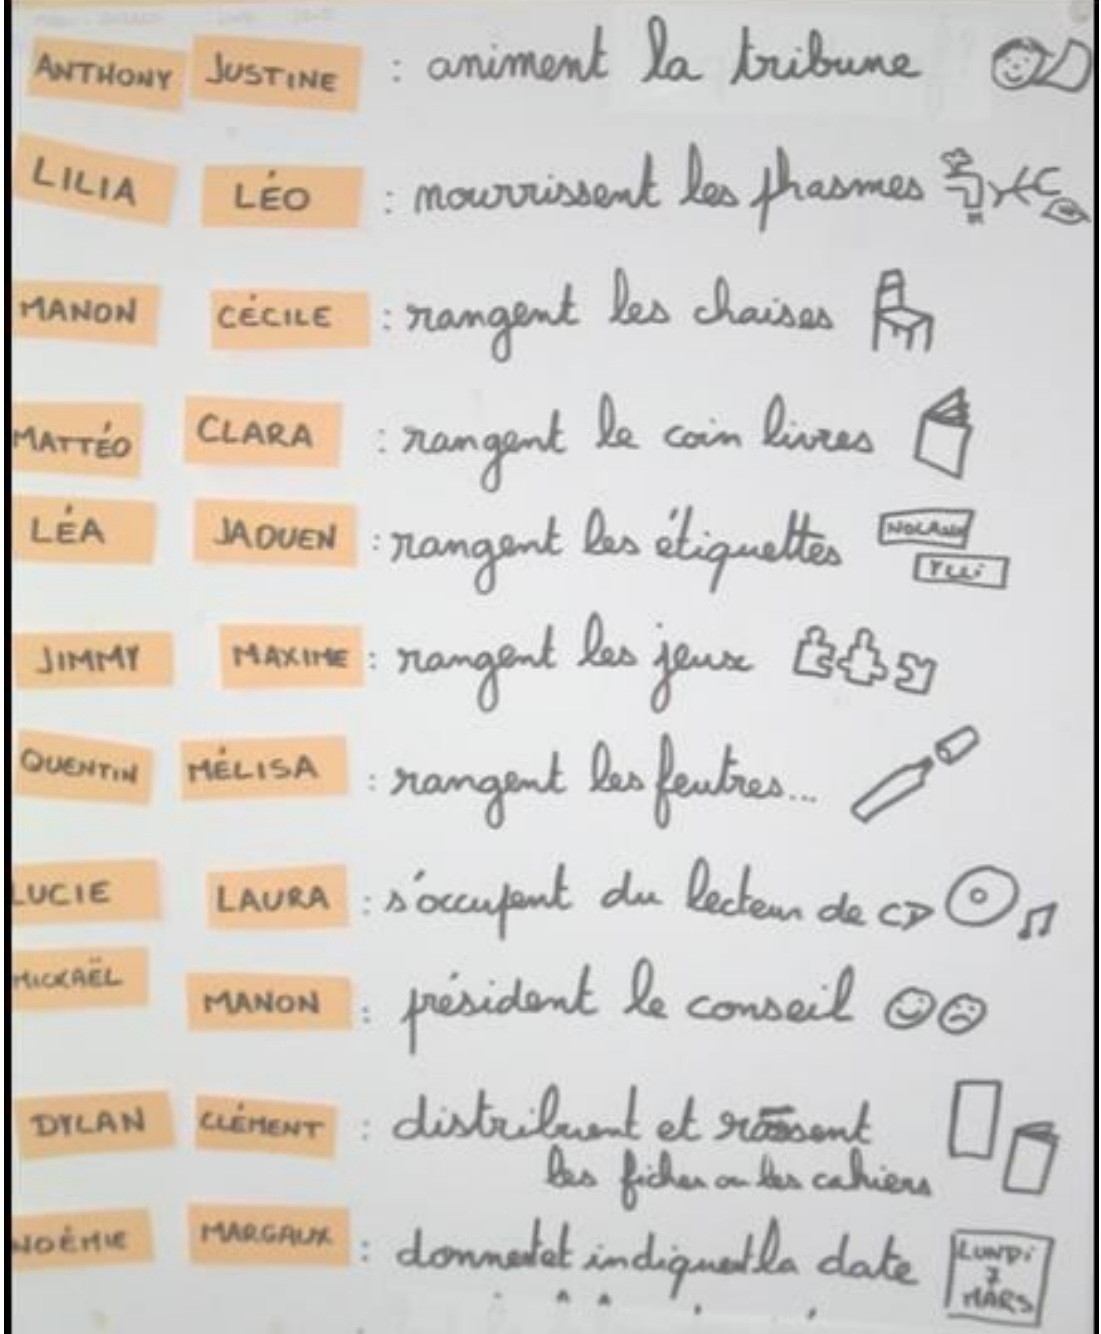 ANTHONY JUSTINE : animent la tribune
LILIA LÉO : nourrissent les phasmes
MANON CÉCILE : rangent les chaises
MATTÉO CLARA : rangent le coin livres
LÉA JAOUEN : rangent les étiquettes NOLANN
YLLI
JIMMY MAXIME : rangent les jeux
QUENTIN MÉLISA : rangent les feutres...
LUCIE LAURA : s'occupent du lecteur de CD
MICKAËL MANON : président le conseil
DYLAN CLÉMENT : distribuent et
les fiches ou les cahiers
NOÉMIE MARGAUX : donnent et indiquent la date LUNDi
7
MARS